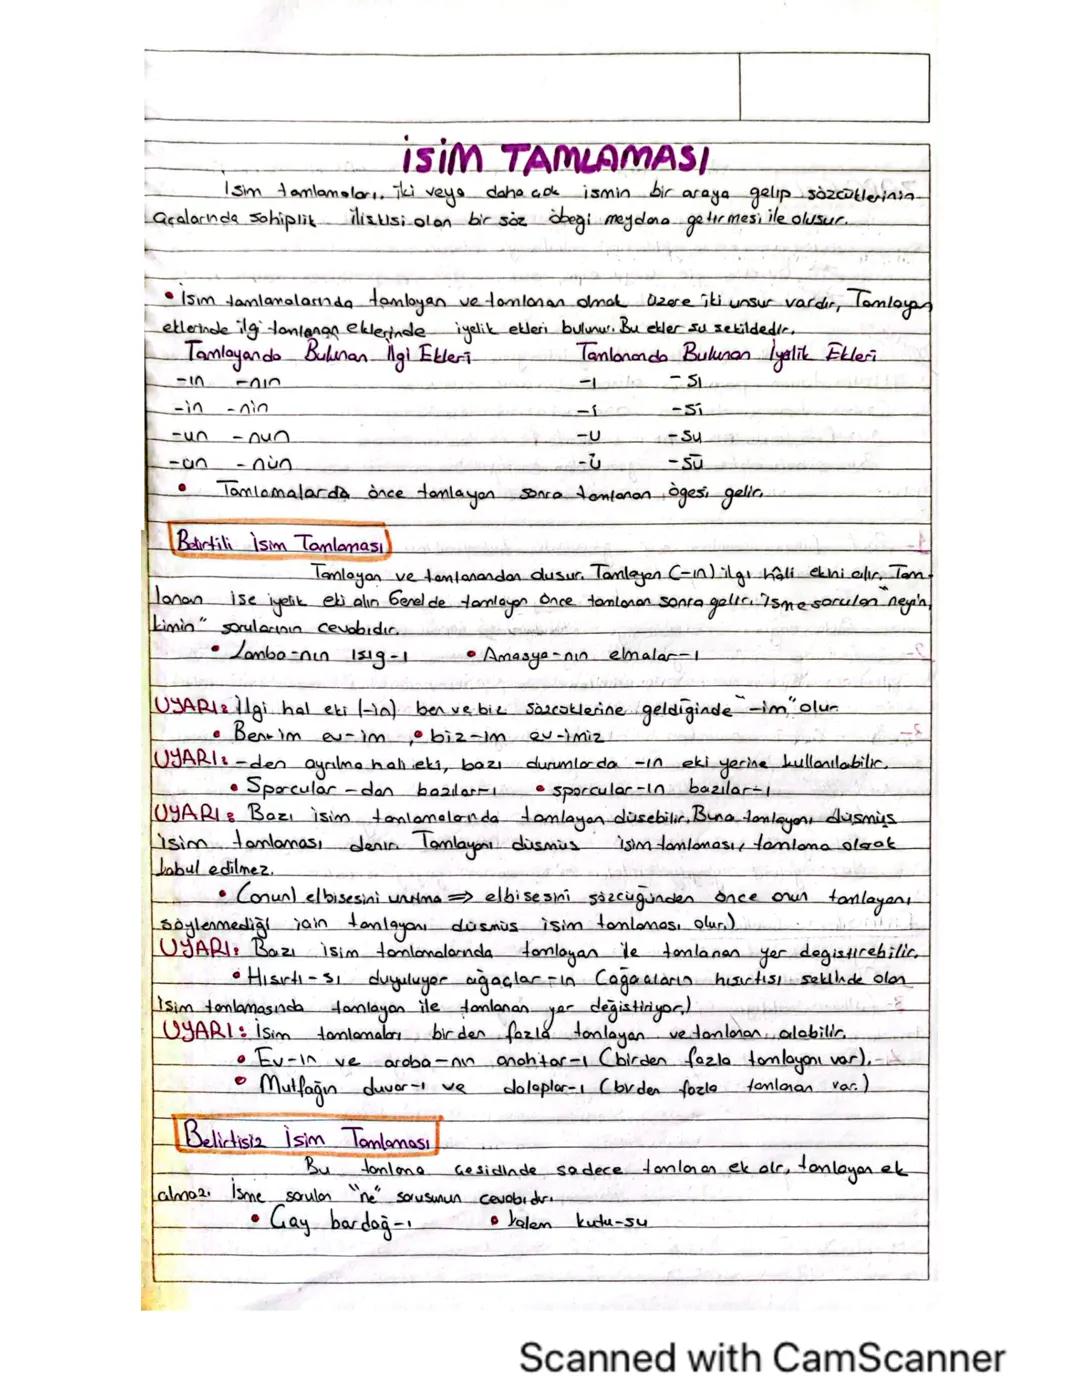 İSİM TAMLAMASI
İsim tamlamaları, iki veya daha çok ismin bir araya gelip sözcüklerinin
aralarında sahiplik ilişkisi olan bir söz öbeği meydana getirmesi ile oluşur.
• İsim tamlamalarında tamlayan ve tamlanan olmak üzere iki unsur vardır, Tamlayan
eklerinde ilgi tamlanan eklerinde iyelik ekleri bulunur. Bu ekler şu şekildedir.
Tamlayanda Bulunan İlgi Ekleri Tamlananda Bulunan İyelik Ekleri
-ın -nın -ı -sı
-in -nin -i -si
-un -nun -u -su
-ün -nün -ü -sü
• Tamlamalarda önce tamlayan sonra tamlanan ögesi gelir.
Belirtili İsim Tamlaması
Tamlayan ve tamlanandan oluşur. Tamlayan (-ın) ilgi hâli ekni alır, Tam
lanan ise iyelik eki alır. Genelde tamlayan önce tamlanan sonra gelir. İsme sorulan "neyin,
kimin" sorularının cevabıdır.
• Lamba-nın ışığ-ı • Amasya-nın elmalar-ı
UYARI: İlgi hal eki (-in) ben ve biz sözcüklerine geldiğinde "-im" olur
• Ben-im ev-im • biz-im ev-imiz
UYARI: -den ayrılma hali eki, bazı durumlarda -ın eki yerine kullanılabilir.
• Sporcular-dan bazılar-ı • sporcular-ın bazılar-ı
UYARI: Bazı isim tamlamalarında tamlayan düşebilir. Buna tamlayanı düşmüş
isim tamlaması denir. Tamlayanı düşmüş isim tamlaması, tamlama olarak
kabul edilmez.
• (onun) elbisesini ⇒ elbisesini sözcüğünden önce onun tamlayanı
söylenmediği için tamlayanı düşmüş isim tamlaması olur.)
UYARI: Bazı isim tamlamalarında tamlayan ile tamlanan yer değiştirebilir.
• Hışırtı-sı duyuluyor ağaçlar-ın (ağaçların hışırtısı şeklinde olan
isim tamlamasında tamlayan ile tamlanan yer değiştiriyor.)
UYARI: İsim tamlamaları birden fazla tamlayan ve tamlanan alabilir.
• Ev-in ve araba-nın anahtar-ı (birden fazla tamlayanı var).
• Mutfağın duvar-ı ve dolaplar-ı (birden fazla tamlanan var.)
Belirtisiz İsim Tamlaması
Bu tamlama çeşidinde sadece tamlanan ek alır, tamlayan ek
almaz. İsme sorulan "ne" sorusunun cevabıdır.
• Çay bardağ-ı • kalem kutu-su
Scanned with CamScanner